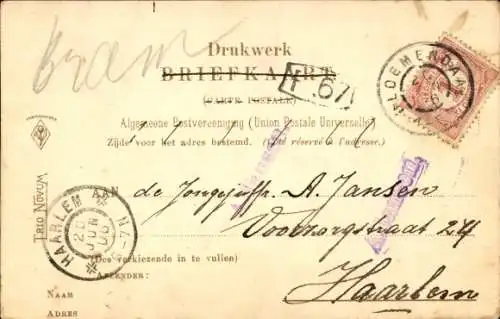 Bram
Drukwerk
BRIEFKAART
(CARTE POSTALE)
Algemeene Postvereeniging (Union Postale Universelle)
Zijde voor het adres bestemd. (Côté réservé à l'adresse.)
67
BLOEMENDAAL
TRIO NOVUM
HAARLEM
20 JUN
AAN
de Jongejuffr. A. Jansen
Voorzorgstraat 24
Haarlem
(Des verkiezende in te vullen)
AFZENDER:
NAAM
ADRES